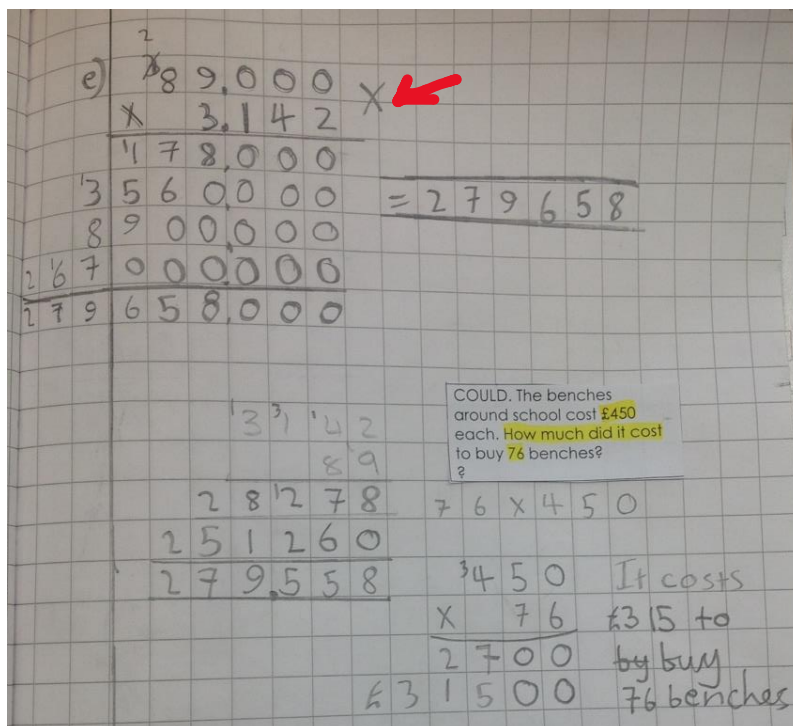 2
e) 89,000 X
X 3.142
1 78,000
1 3 5 6 0,0 0 0
= 2 7 9 6 5 8
8 9 0 0,0 0 0
2 1 6 7 0 0 0,0 0 0
2 7 9 6 5 8,0 0 0
1 3 3 1 1 4 2
8 9
2 8 1 2 7 8
2 5 1 2 6 0
2 7 9.5 5 8
COULD. The benches
around school cost £450
each. How much did it cost
to buy 76 benches?
?
7 6 X 4 5 0
3 4 5 0
X 7 6
2 7 0 0
£ 3 1 5 0 0
It costs
£315 to
by buy
76 benches